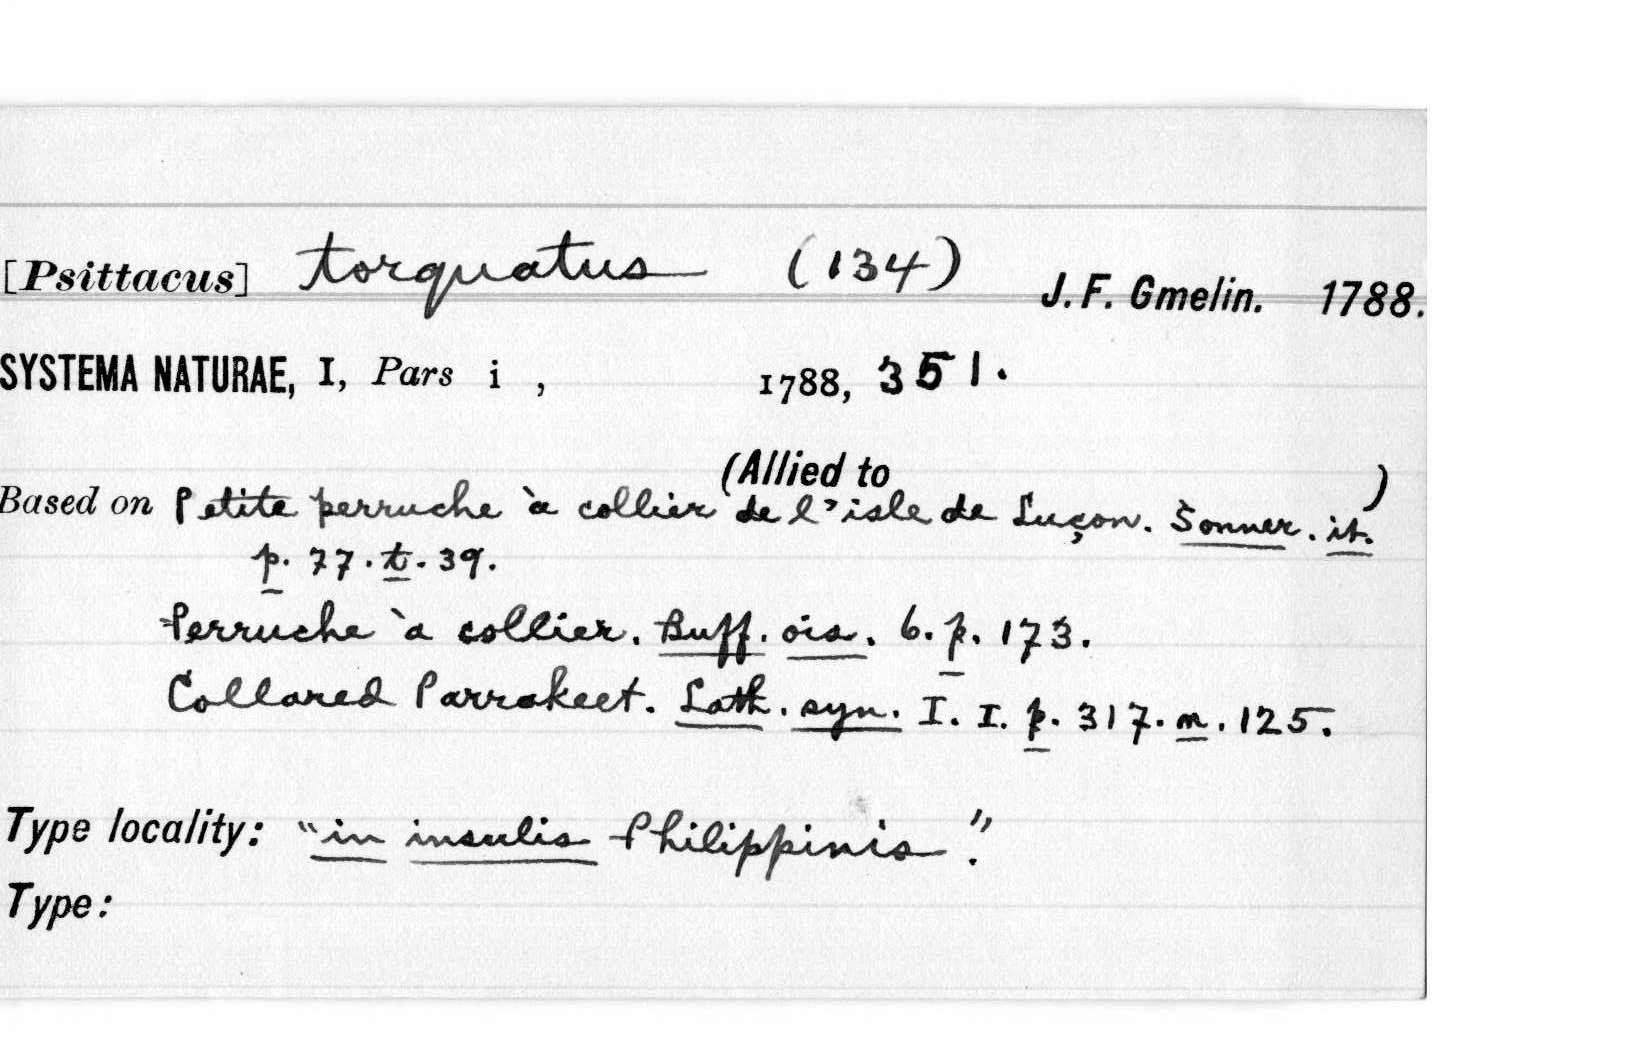 [Psittacus] torquatus (134) J. F. Gmelin. 1788.
SYSTEMA NATURAE, I, Pars i , 1788, 351.
(Allied to )
Based on Petite perruche à collier de l'isle de Luçon. Sonner. it.
p. 77. t. 39.
Perruche à collier. Buff. ois. 6. p. 173.
Collared Parrakeet. Lath. syn. I. I. p. 317. n. 125.
Type locality: "in insulis Philippinis."
Type: